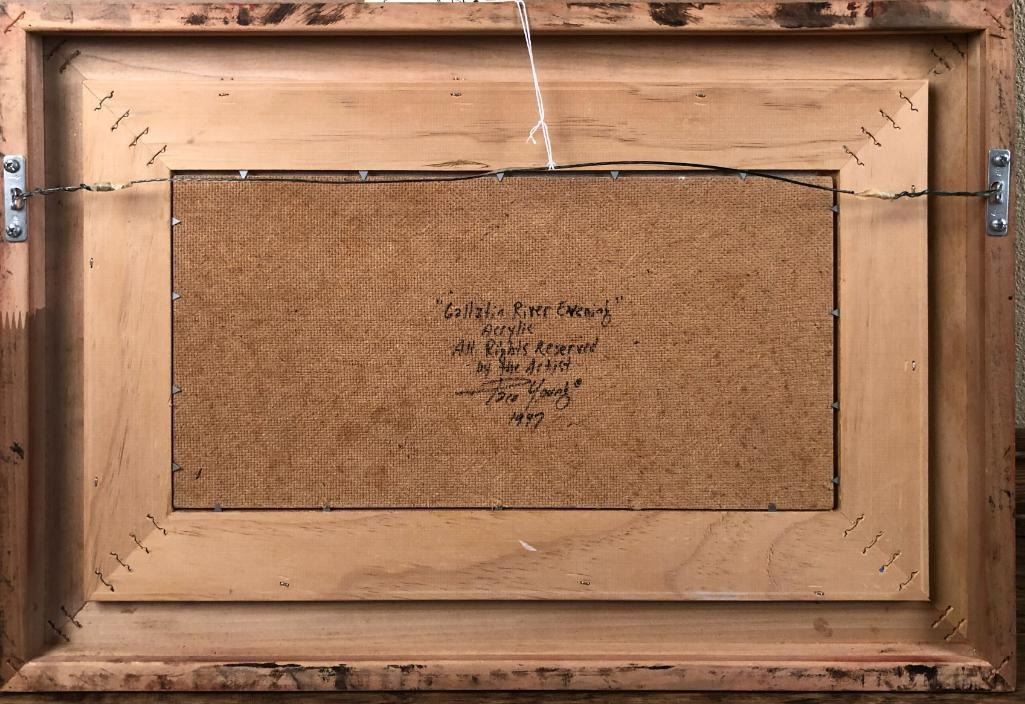 "Gallatin River Evening"
Acrylic
All Rights Reserved
by the Artist
Young©
1997